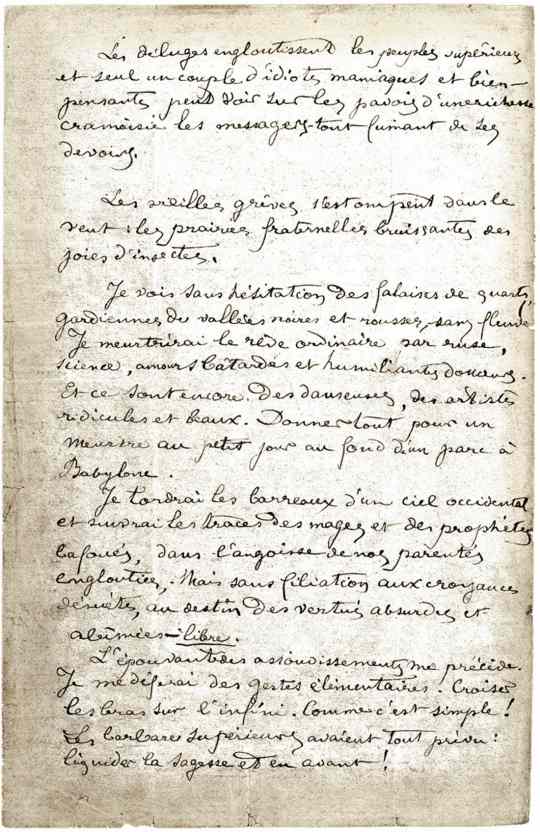 Les déluges engloutissent les peuples supérieurs
et seul un couple d'idiots maniaques et bien-
pensants peut voir sur les pavois d'une richesse
cramoisie les messagers tout fumant de ses
devoirs.
Les vieilles grèves s'estompent dans le
vent & les prairies fraternelles bruissantes des
joies d'insectes.
Je vois sans hésitation des falaises de quartz,
gardiennes de vallées noires et rousses, sans fleuve
Je meurtrirai le rêve ordinaire par ruse,
science, amours bâtardes et humiliantes douceurs.
Et ce sont encore des danseuses, des artistes
ridicules et beaux. Donner tout pour un
meurtre au petit jour au fond d'un parc à
Babylone.
Je tordrai les barreaux d'un ciel occidental
et suivrai les traces des mages et des prophètes
bafoués, dans l'angoisse de nos parentés
englouties. Mais sans filiation aux croyances
désuètes, au destin des vertus absurdes et
abîmées - libre.
L'épouvante des assourdissements me précède.
Je me déferai des gestes élémentaires. Croiser
les bras sur l'infini. Comme c'est simple !
Les barbares supérieurs avaient tout prévu :
liquider la sagesse et en avant !